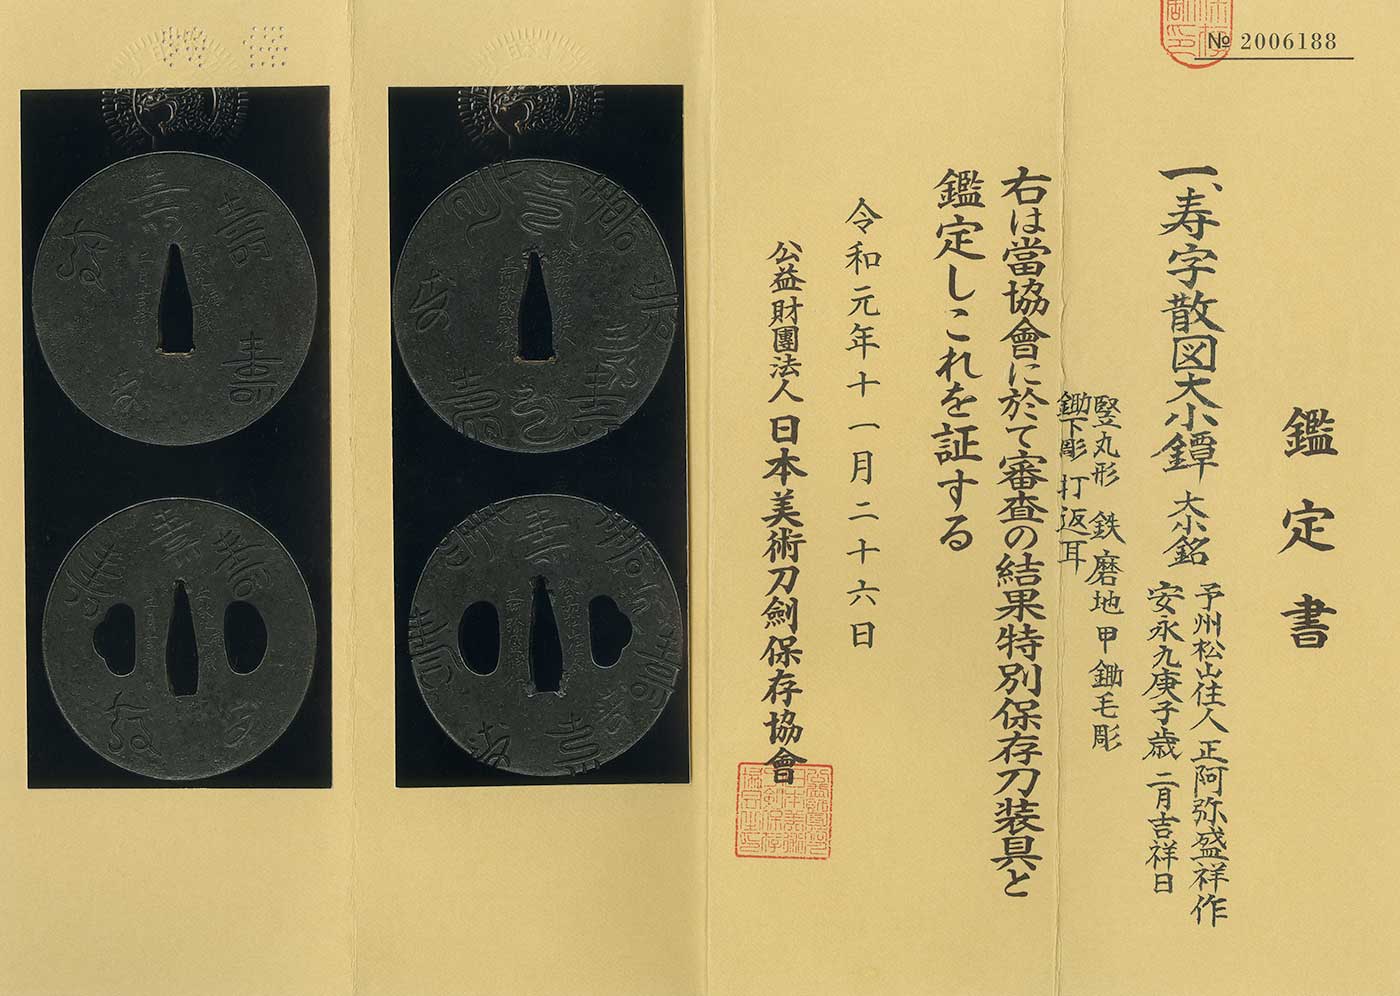 № 2006188
鑑定書
一、寿字散図大小鐔 大小銘 予州松山住人 正阿弥盛祥作
安永九庚子歳 二月吉祥日
竪丸形 鉄磨地 甲鋤毛彫
鋤下彫 打返耳
右は當協會に於て審査の結果特別保存刀装具と
鑑定しこれを証する
令和元年十一月二十六日
公益財團法人 日本美術刀劍保存協會